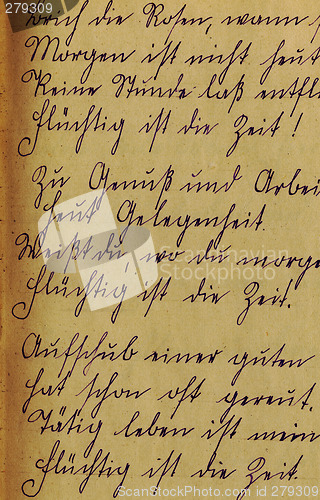 279309
brich die Rosen, wann s
Morgen ist nicht heut
Keine Stunde laß entfl
flüchtig ist die Zeit!
Zu Genuß und Arbei
heut' Gelegenheit.
Weißt du, wo du morge
flüchtig ist die Zeit.
Aufschub einer guten
hat schon oft gereut.
Tätig leben ist mein
flüchtig ist die Zeit.
©Stockphoto Rosinka
© Shannon / Rosinka / 279309